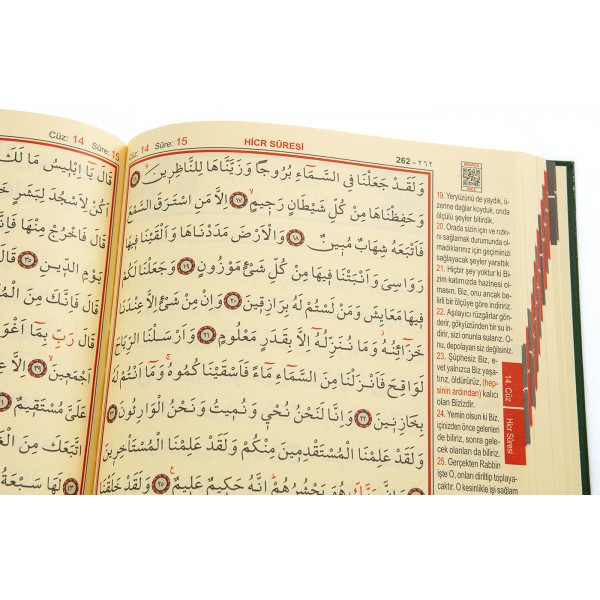 Cüz: 14 Sûre: 15
قَالَ يَٓا اِبْل۪يسُ مَا لَكَ
اَكُنْ لِاَسْجُدَ لِبَشَرٍ
قَالَ فَاخْرُجْ مِنْهَا
يَوْمِ الدّ۪ينِ ﴿٣٥﴾
قَالَ فَاِنَّكَ مِنَ
قَالَ رَبِّ بِمَٓا
اَجْمَع۪ينَ ﴿٣٩﴾
مُسْتَق۪يمٌ
اتَّبَعَكَ مِنَ
لَهَا سَبْعَةُ
Cüz: 14 Sûre: 15 HİCR SÛRESİ 262 - ٢٦٢
وَلَقَدْ جَعَلْنَا فِي السَّمَٓاءِ بُرُوجًا وَزَيَّنَّاهَا لِلنَّاظِر۪ينَۙ ﴿١٦﴾
وَحَفِظْنَاهَا مِنْ كُلِّ شَيْطَانٍ رَج۪يمٍۙ ﴿١٧﴾ اِلَّا مَنِ اسْتَرَقَ السَّمْعَ
فَاَتْبَعَهُ شِهَابٌ مُب۪ينٌ ﴿١٨﴾ وَالْاَرْضَ مَدَدْنَاهَا وَاَلْقَيْنَا ف۪يهَا
رَوَاسِيَ وَاَنْبَتْنَا ف۪يهَا مِنْ كُلِّ شَيْءٍ مَوْزُونٍ ﴿١٩﴾ وَجَعَلْنَا لَكُمْ
ف۪يهَا مَعَايِشَ وَمَنْ لَسْتُمْ لَهُ بِرَازِق۪ينَ ﴿٢٠﴾ وَاِنْ مِنْ شَيْءٍ اِلَّا عِنْدَنَا
خَزَٓائِنُهُ وَمَا نُنَزِّلُهُٓ اِلَّا بِقَدَرٍ مَعْلُومٍ ﴿٢١﴾ وَاَرْسَلْنَا الرِّيَاحَ
لَوَاقِحَ فَاَنْزَلْنَا مِنَ السَّمَٓاءِ مَٓاءً فَاَسْقَيْنَاكُمُوهُۚ وَمَٓا اَنْتُمْ لَهُ
بِخَازِن۪ينَ ﴿٢٢﴾ وَاِنَّا لَنَحْنُ نُحْي۪ وَنُم۪يتُ وَنَحْنُ الْوَارِثُونَ ﴿٢٣﴾
وَلَقَدْ عَلِمْنَا الْمُسْتَقْدِم۪ينَ مِنْكُمْ وَلَقَدْ عَلِمْنَا الْمُسْتَأْخِر۪ينَ
﴿٢٤﴾ وَاِنَّ رَبَّكَ هُوَ يَحْشُرُهُمْۜ اِنَّهُ حَك۪يمٌ عَل۪يمٌ۟ ﴿٢٥﴾ وَلَقَدْ خَلَقْنَا
19. Yeryüzünü de yaydık, ü-
zerine dağlar koyduk, onda
ölçülü şeyler bitirdik.
20. Orada sizin için ve rızkı-
nı sağlamak durumunda ol-
madıklarınız için geçiminizi
sağlayacak şeyler yarattık.
21. Hiçbir şey yoktur ki Bi-
zim katımızda hazinesi ol-
masın. Biz, onu ancak be-
lirli bir ölçüye göre indiririz.
22. Aşılayıcı rüzgârlar gön-
derir, gökyüzünden bir su in-
dirir, sizi onunla sularız. O-
nu, depolayan siz değilsiniz.
23. Şüphesiz Biz, e-
vet yalnızca Biz yaşa-
tırız, öldürürüz, (hep-
sinin ardından) kalıcı
olan Bizizdir.
24. Yemin olsun ki Biz,
içinizden önce gelenleri
de biliriz, sonra gele-
cek olanları da biliriz.
25. Gerçekten Rabbin
işte O, onları diriltip toplaya-
caktır. O kesinlikle işi sağlam
14. Cüz
Hicr Sûresi